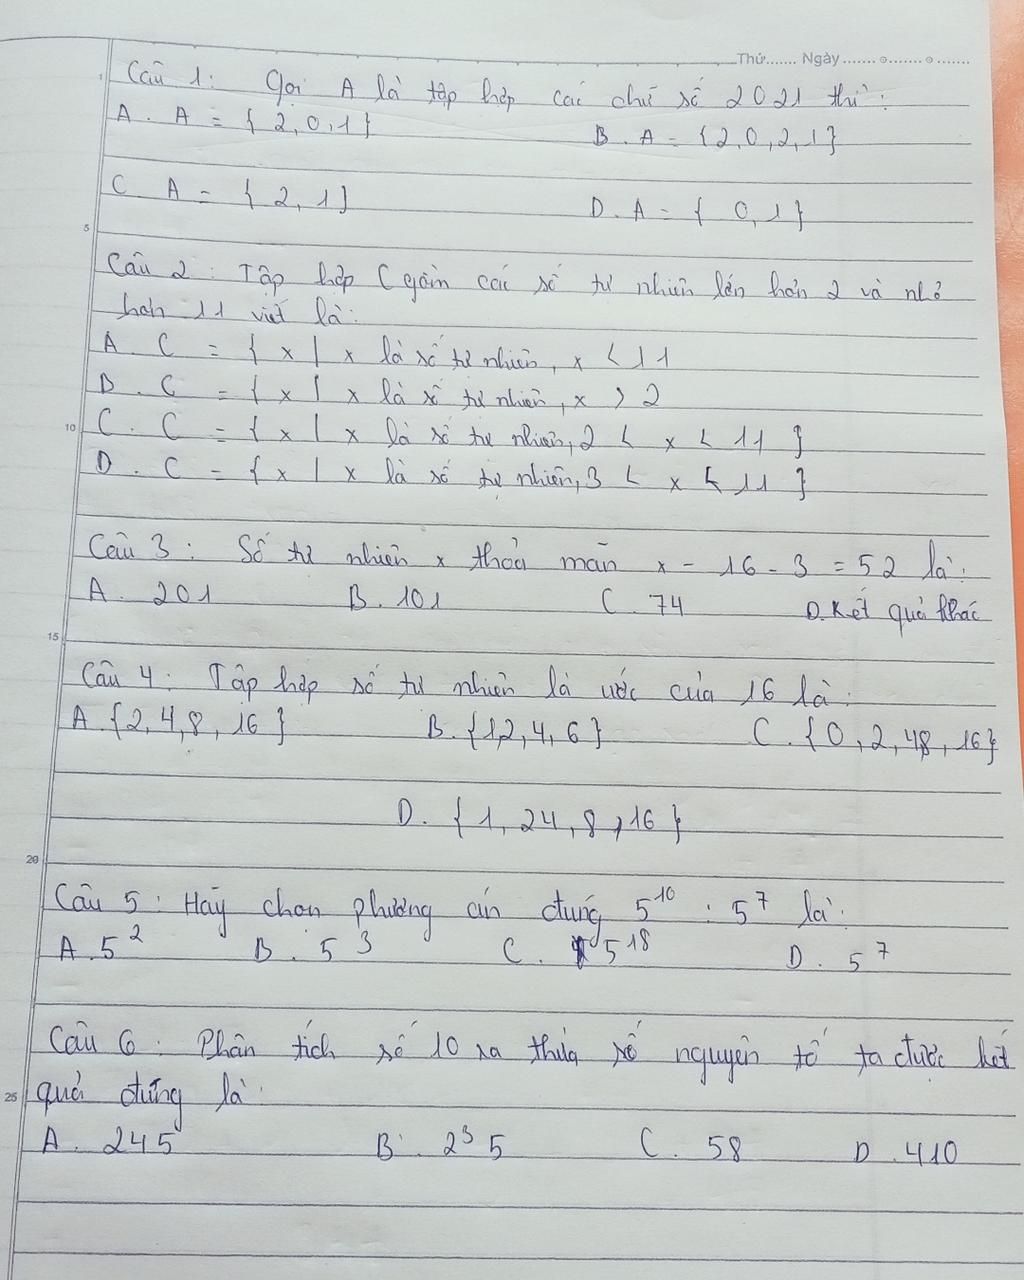 Thứ....... Ngày....... o....... o.......
Câu 1: Gọi A là tập hợp các chữ số 2021 thì:
A. A = { 2, 0, 1 } B. A = { 2, 0, 2, 1 }
C A = { 2, 1 } D. A = { 0, 1 }
5
Câu 2: Tập hợp C gồm các số tự nhiên lớn hơn 2 và nhỏ
hơn 11 viết là:
A. C = { x | x là số tự nhiên, x < 11
B. C = { x | x là số tự nhiên, x > 2
10 C. C = { x | x là số tự nhiên, 2 < x < 11 }
D. C = { x | x là số tự nhiên, 3 < x < 11 }
Câu 3: Số tự nhiên x thỏa mãn x - 16 - 3 = 52 là:
A. 201 B. 101 C. 74 D. Kết quả khác
15
Câu 4: Tập hợp số tự nhiên là ước của 16 là:
A. {2, 4, 8, 16 } B. {1,2, 4, 6 } C. {0, 2, 48, 16}
D. { 1, 24, 8, 16 }
20
Câu 5: Hãy chọn phương án đúng 5¹⁰ : 5⁷ là:
A. 5² B. 5³ C. 5¹⁸ D. 5⁷
Câu 6: Phân tích số 10 ra thừa số nguyên tố ta được kết
25 quả đúng là:
A. 245 B. 2³ 5 C. 58 D. 410